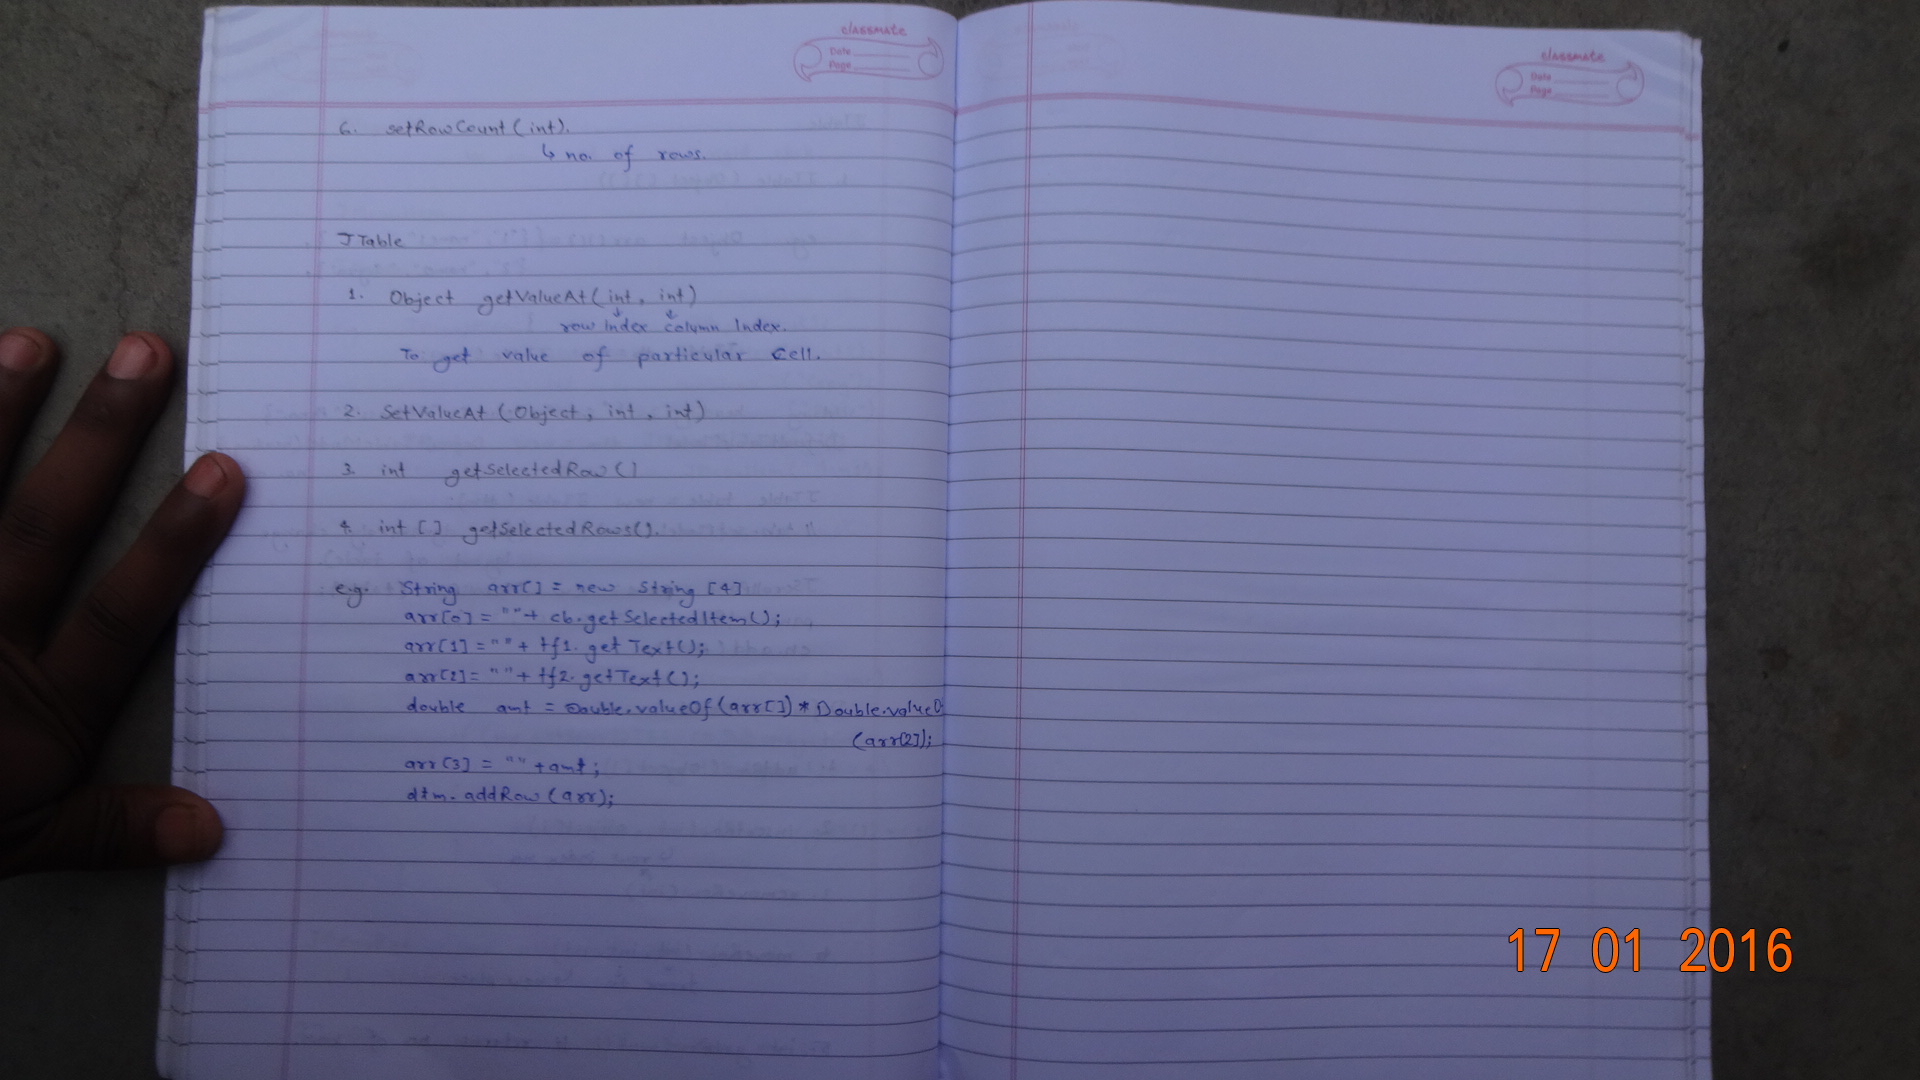 classmate
Date
Page
6. setRowCount (int).
↳ no. of rows.
JTable
1. Object getValueAt (int, int)
row Index column Index.
To get value of particular Cell.
2. SetValueAt (Object, int, int)
3. int getSelectedRow ()
4. int [] getSelectedRows().
e.g. String arr[] = new String [4]
arr[0] = "" + cb.getSelectedItem();
arr[1] = "" + tf1.getText();
arr[2] = "" + tf2.getText();
double amt = Double.valueOf(arr[]) * Double.valueO
(arr[2]);
arr[3] = "" + amt;
dtm.addRow (arr);
classmate
Date
Page
17 01 2016